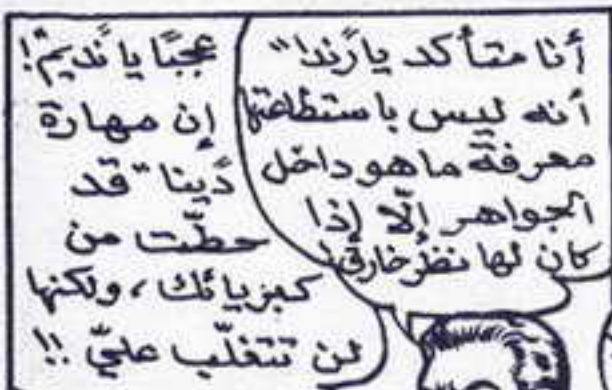 أنا متأكد يا "رندا"
أنه ليس باستطاعتها
معرفة ما هو داخل
الجواهر إلّا إذا
كان لها نظر خارق!
عجبًا يا "نديم"!
إن مهارة
"دينا" قد
حطّت من
كبريائك، ولكنها
لن تتغلّب عليّ!!